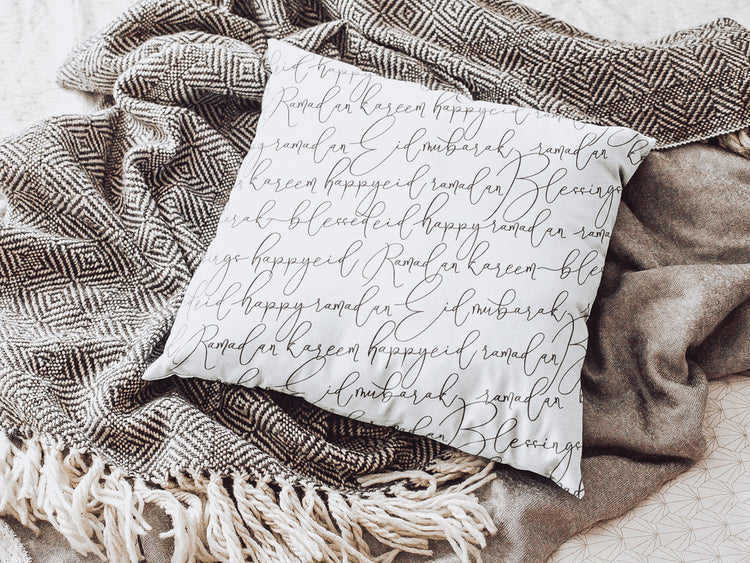 eid happy
Ramadan kareem happy eid
y ramadan Eid mubarak ramadan
kareem happy eid ramadan Blessings
arak blessed eid happy ramadan
ngs happy eid Ramadan kareem bles
deid happy ramadan Eid mubarak
Ramadan kareem happy eid ramadan B
Eid mubarak ramadan
Blessings